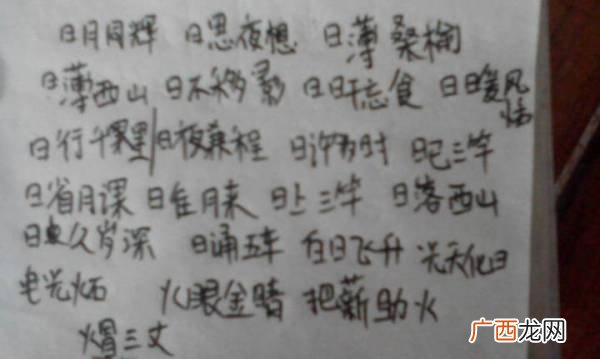 日月同辉 日思夜想 日薄桑榆
日薄西山 日不移影 日旰忘食 日暖风恬
日行千里 日夜兼程 日许多时 日已三竿
日省月课 日往月来 日上三竿 日落西山
日久岁深 日诵五车 白日飞升 光天化日
电光火石 火眼金睛 把薪助火
火冒三丈
广西龙网